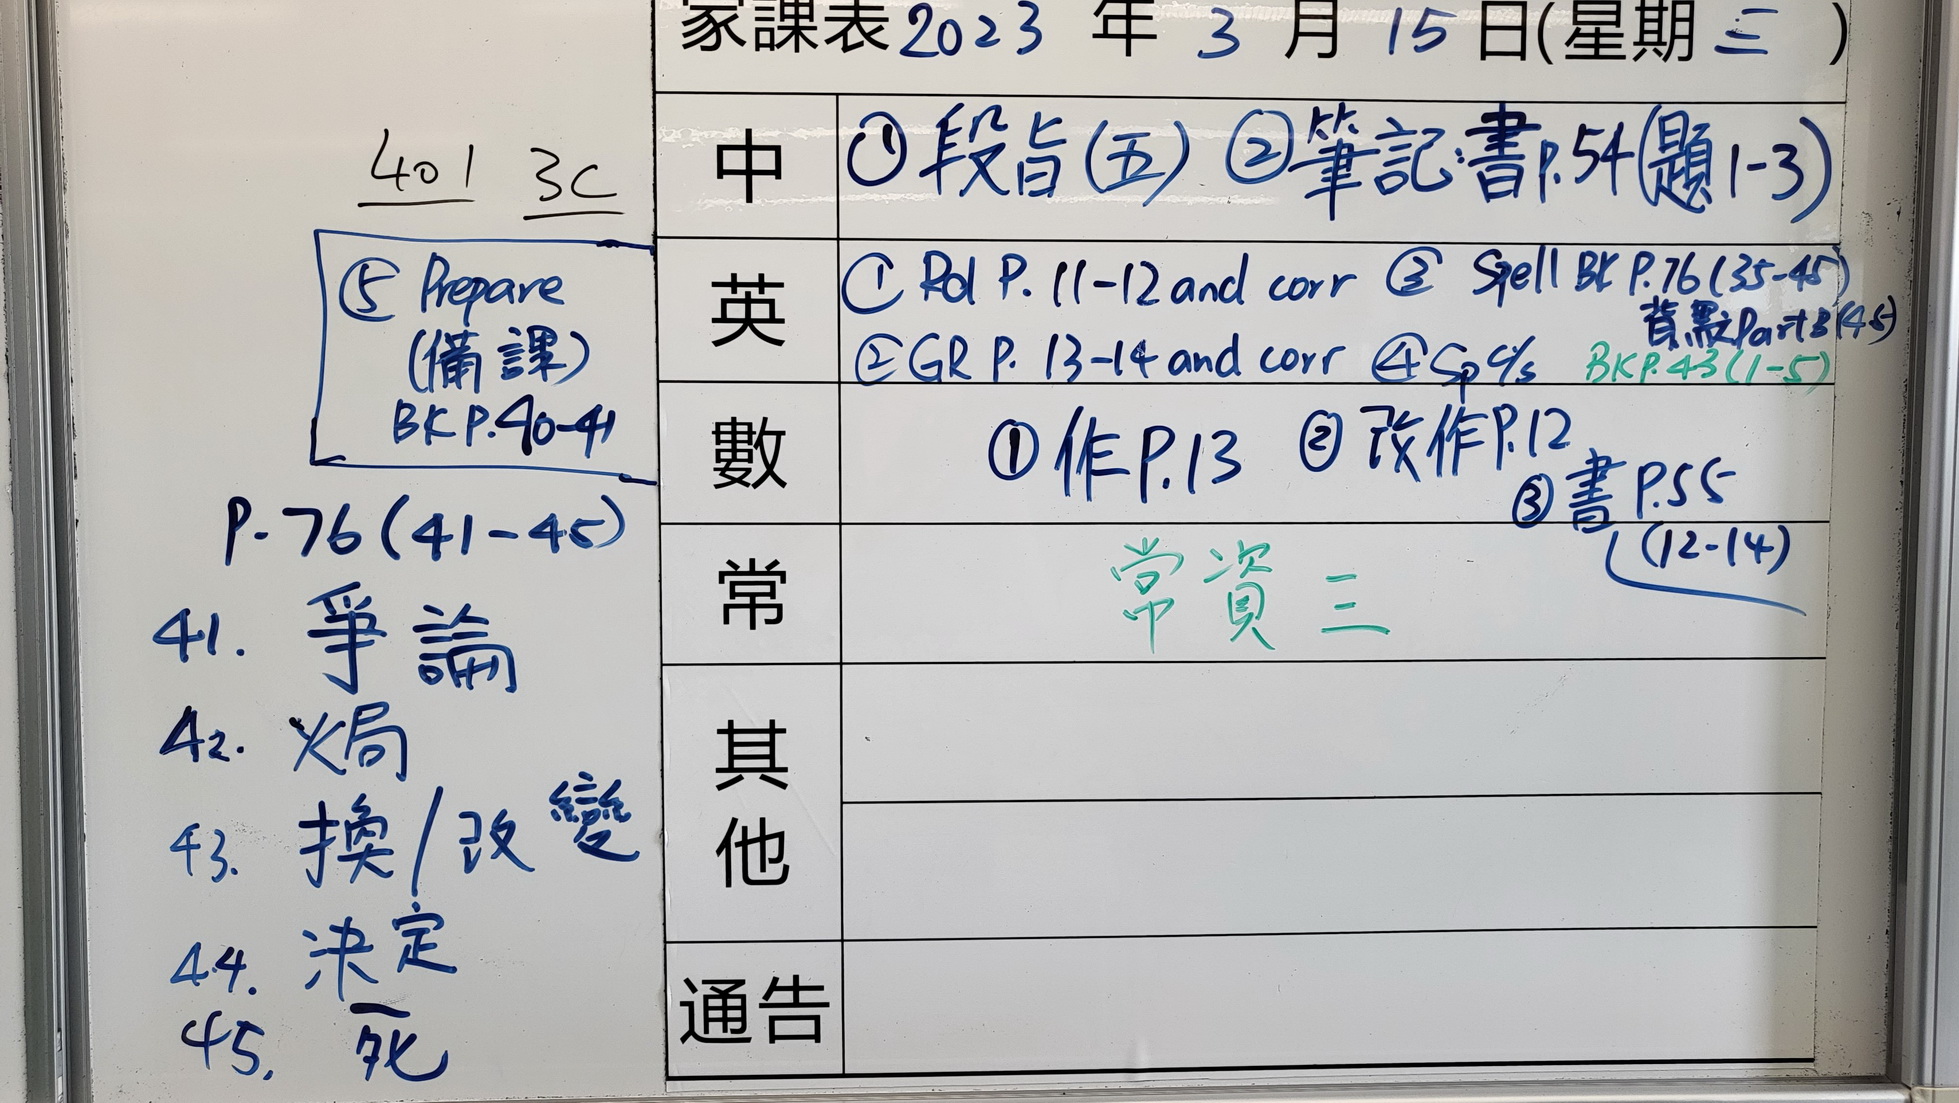 家課表 2023 年 3 月 15 日(星期三)
401 3C
中 ① 段旨(五) ② 筆記:書P.54(題1-3)
英 ① Rd P. 11-12 and corr ③ Spell BK P.76 (35-45)
背默 Part B (45)
② GR P. 13-14 and corr ④ Sp c/s BK P.43 (1-5)
⑤ Prepare
(備課)
BK P.40-41
數 ① 作P.13 ② 改作P.12
③ 書 P.55
(12-14)
常 常資三
其他
通告
P.76 (41-45)
41. 爭論
42. 焗
43. 換/改變
44. 決定
45. 死